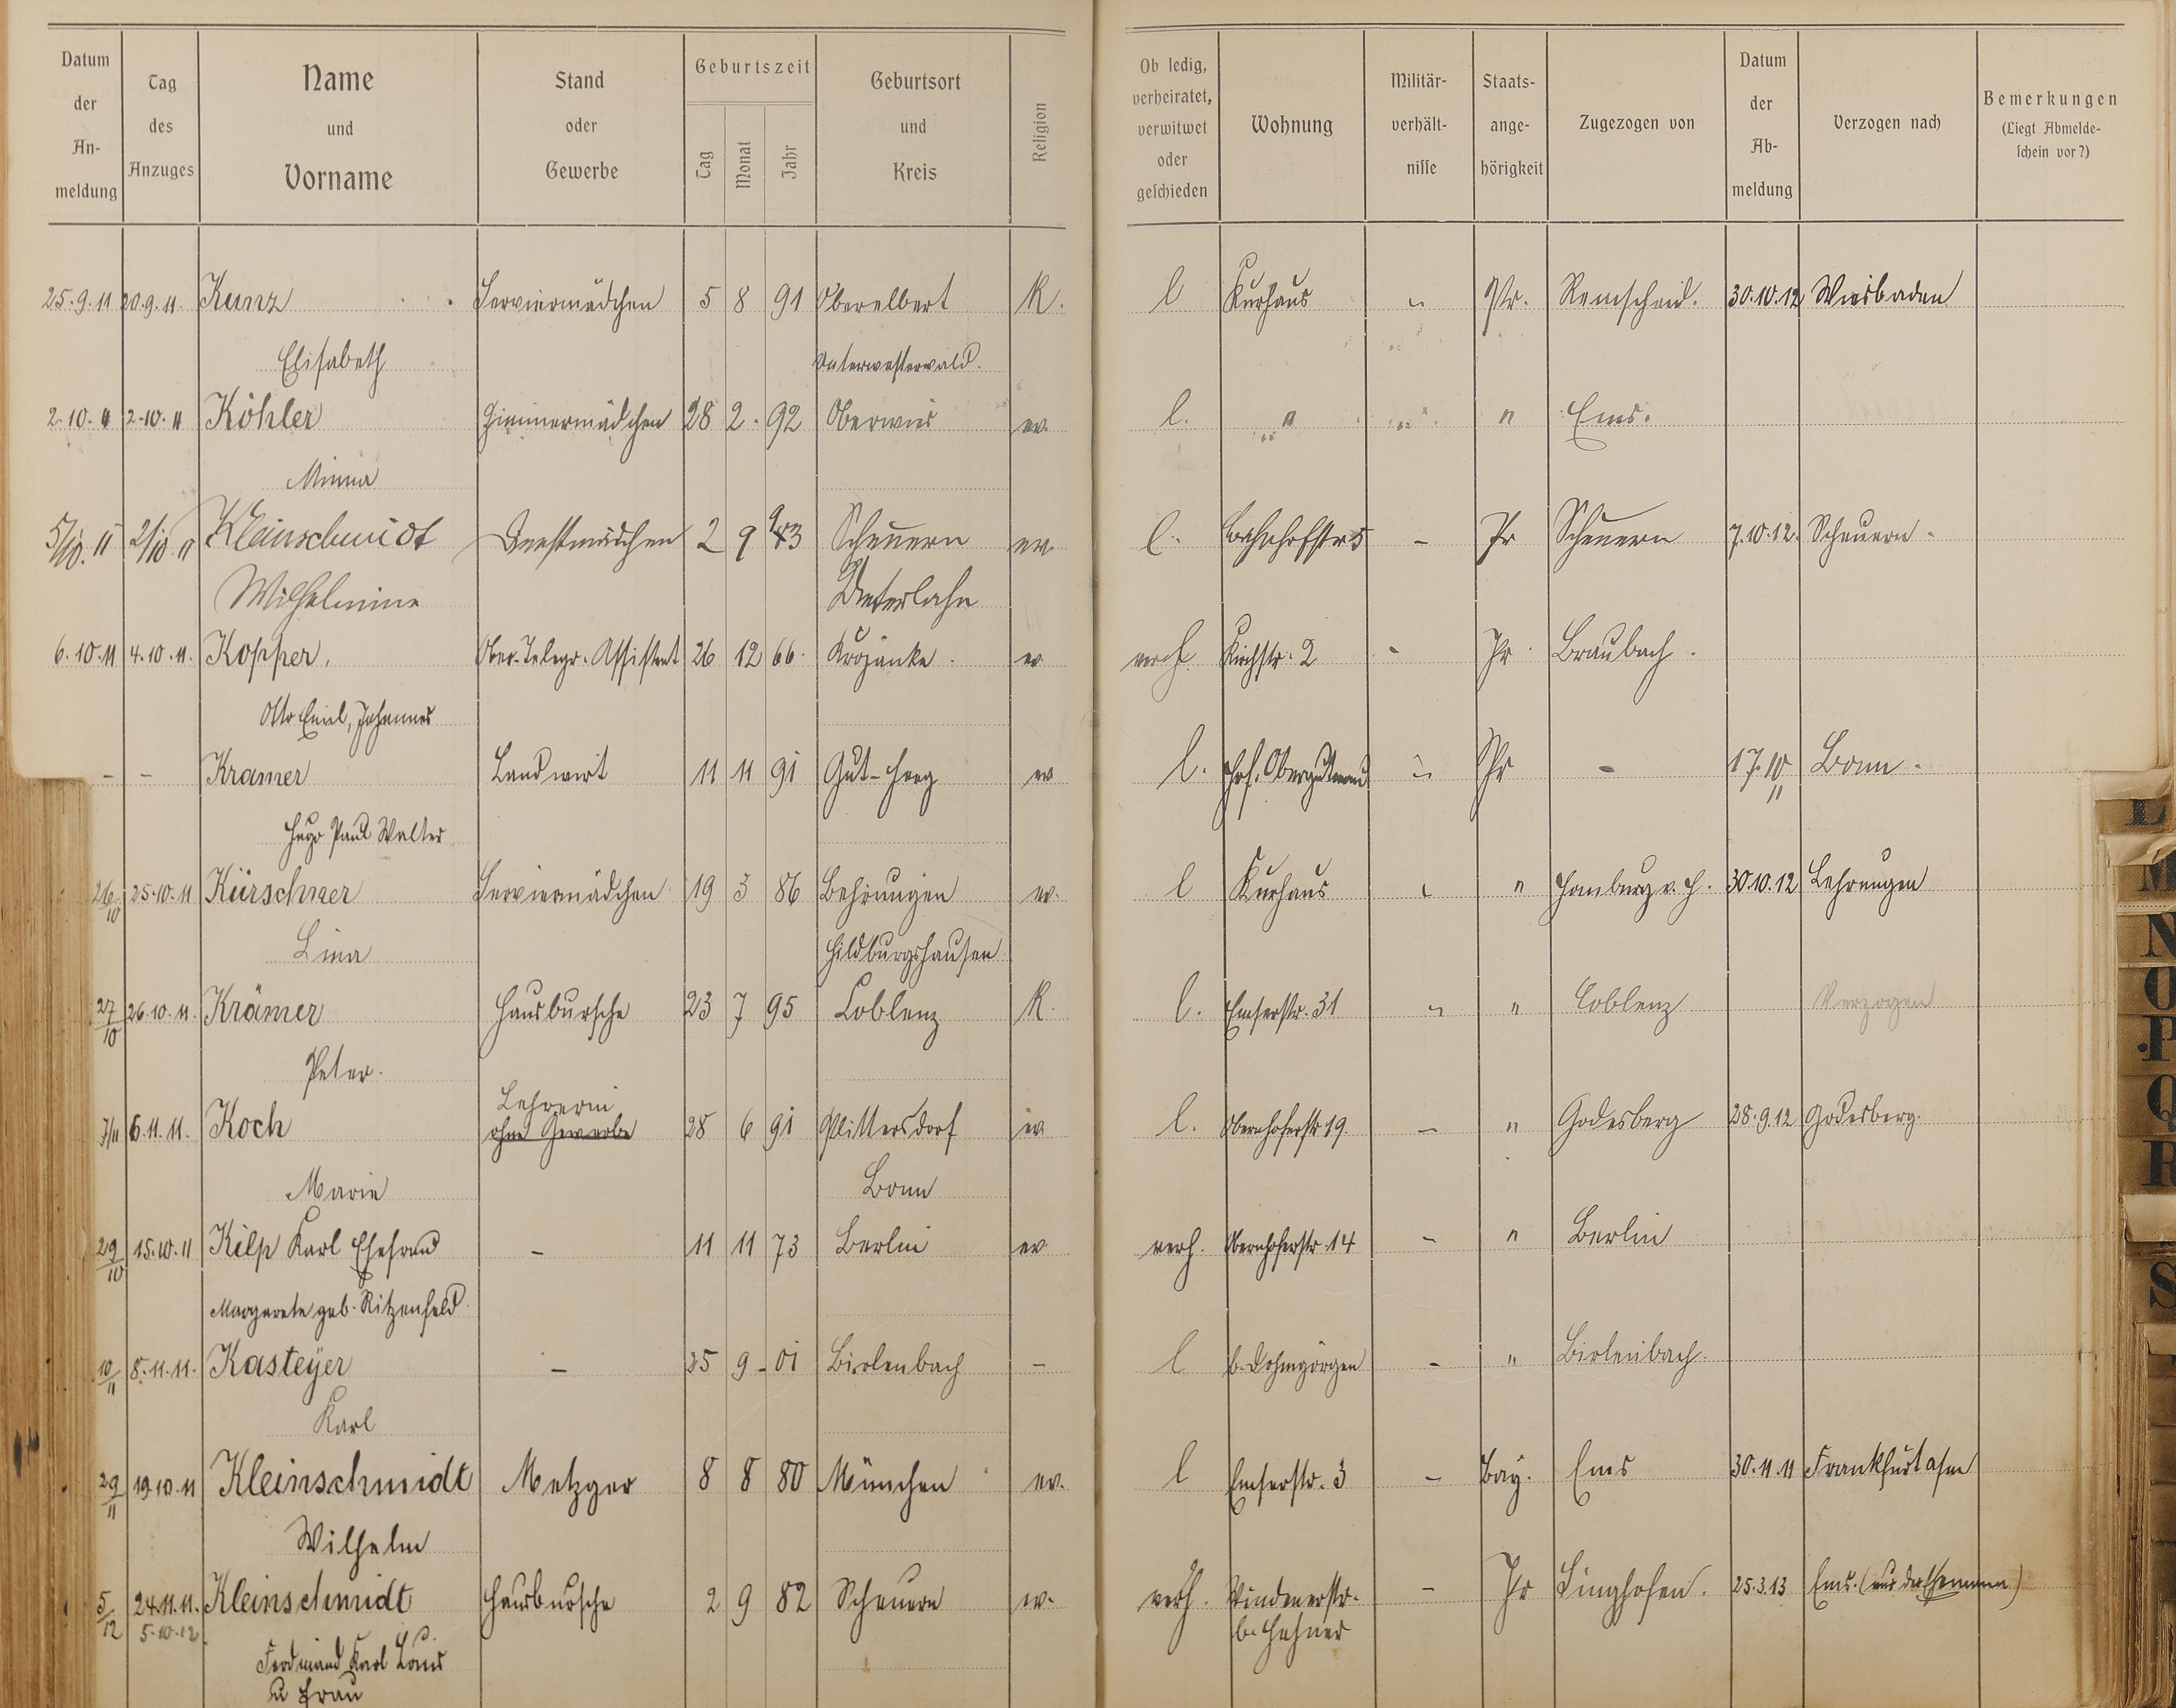 Datum der An- meldung | Tag des Anzuges | Name und Vorname | Stand oder Gewerbe | Geburtszeit Tag Monat Jahr | Geburtsort und Kreis | Religion | Ob ledig, verheiratet, verwitwet oder geschieden | Wohnung | Militär- verhält- nisse | Staats- ange- hörigkeit | Zugezogen von | Datum der Ab- meldung | Verzogen nach | Bemerkungen (Liegt Abmelde- schein vor?)
25.9.11 20.9.11. Kunz Serviermädchen 5 8 91 Oberelbert K. l Kurhaus " Pr. Remscheid. 30.10.12 Wiesbaden
Elisabeth Unterwesterwald.
2.10.11 2.10.11 Köhler Zimmermädchen 28 2. 92 Oberwies ev. l. " " " Ems.
Minna
5/10.11 2/10.11 Kleinschmidt Dienstmädchen 2 9 83 Scheuern ev. l. Bahnhofstr 5 - Pr Scheuern 7.10.12. Scheuern.
Wilhelmine Unterlahn
6.10.11 4.10.11. Kopper, Ober-Telegr.-Assistent 26 12 66. Krojanke. ev verh Kirchstr. 2 - Pr. Braubach.
Otto Emil, Johannes
- - Kramer Landwirt 11 11 91 ev l. " Pr - 17.10 11 Bonn.
Hugo Paul Walter
26/10 25.10.11 Kürschner Serviermädchen 19 3 86 Behrungen ev. l Kurhaus " " Homburg v. H. 30.10.12 Behrungen
Lina Hildburghausen
27/10 26.10.11. Krämer Hausbursche 23 7 95 Coblenz K. l. Emserstr. 31 " " Coblenz Verzogen
Peter.
Lehrerin
7/11 6.11.11. Koch ohne Gewerbe 28 6 91 Plittersdorf ev l. Obernhoferstr 19. - " Godesberg 28.9.12 Godesberg.
Marie Bonn
29/10 15.10.11 Kilp Karl Ehefrau - 11 11 73 Berlin ev verh. Obernhoferstr. 14 - " Berlin
Margarete geb. Ritzenfeld
10/11 8.11.11. Kasteyer - 25 9 - 01 Birlenbach - l b. Dohmgörgen - " Birlenbach.
Karl
29/11 19.10.11 Kleinschmidt Metzger 8 8 80 München ev. l Emserstr. 3 - Bay. Ems 30.11.11 Frankfurt a/m
Wilhelm
5/12 24.11.11. Kleinschmidt Hausbursche 2 9 82 Scheuern ev. verh. Windenerstr. - Pr Singhofen. 25.3.13 Ems. (nur der Ehemann)
5.10.12 b. Hahner
Ferdinand Karl Louis
u Frau
L
M
N
O
P
Q
R
S